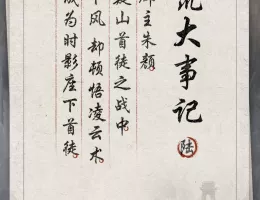 大事记 陆
主朱颜
山首徒之战中
下风 却顿悟凌云术
成为时影座下首徒